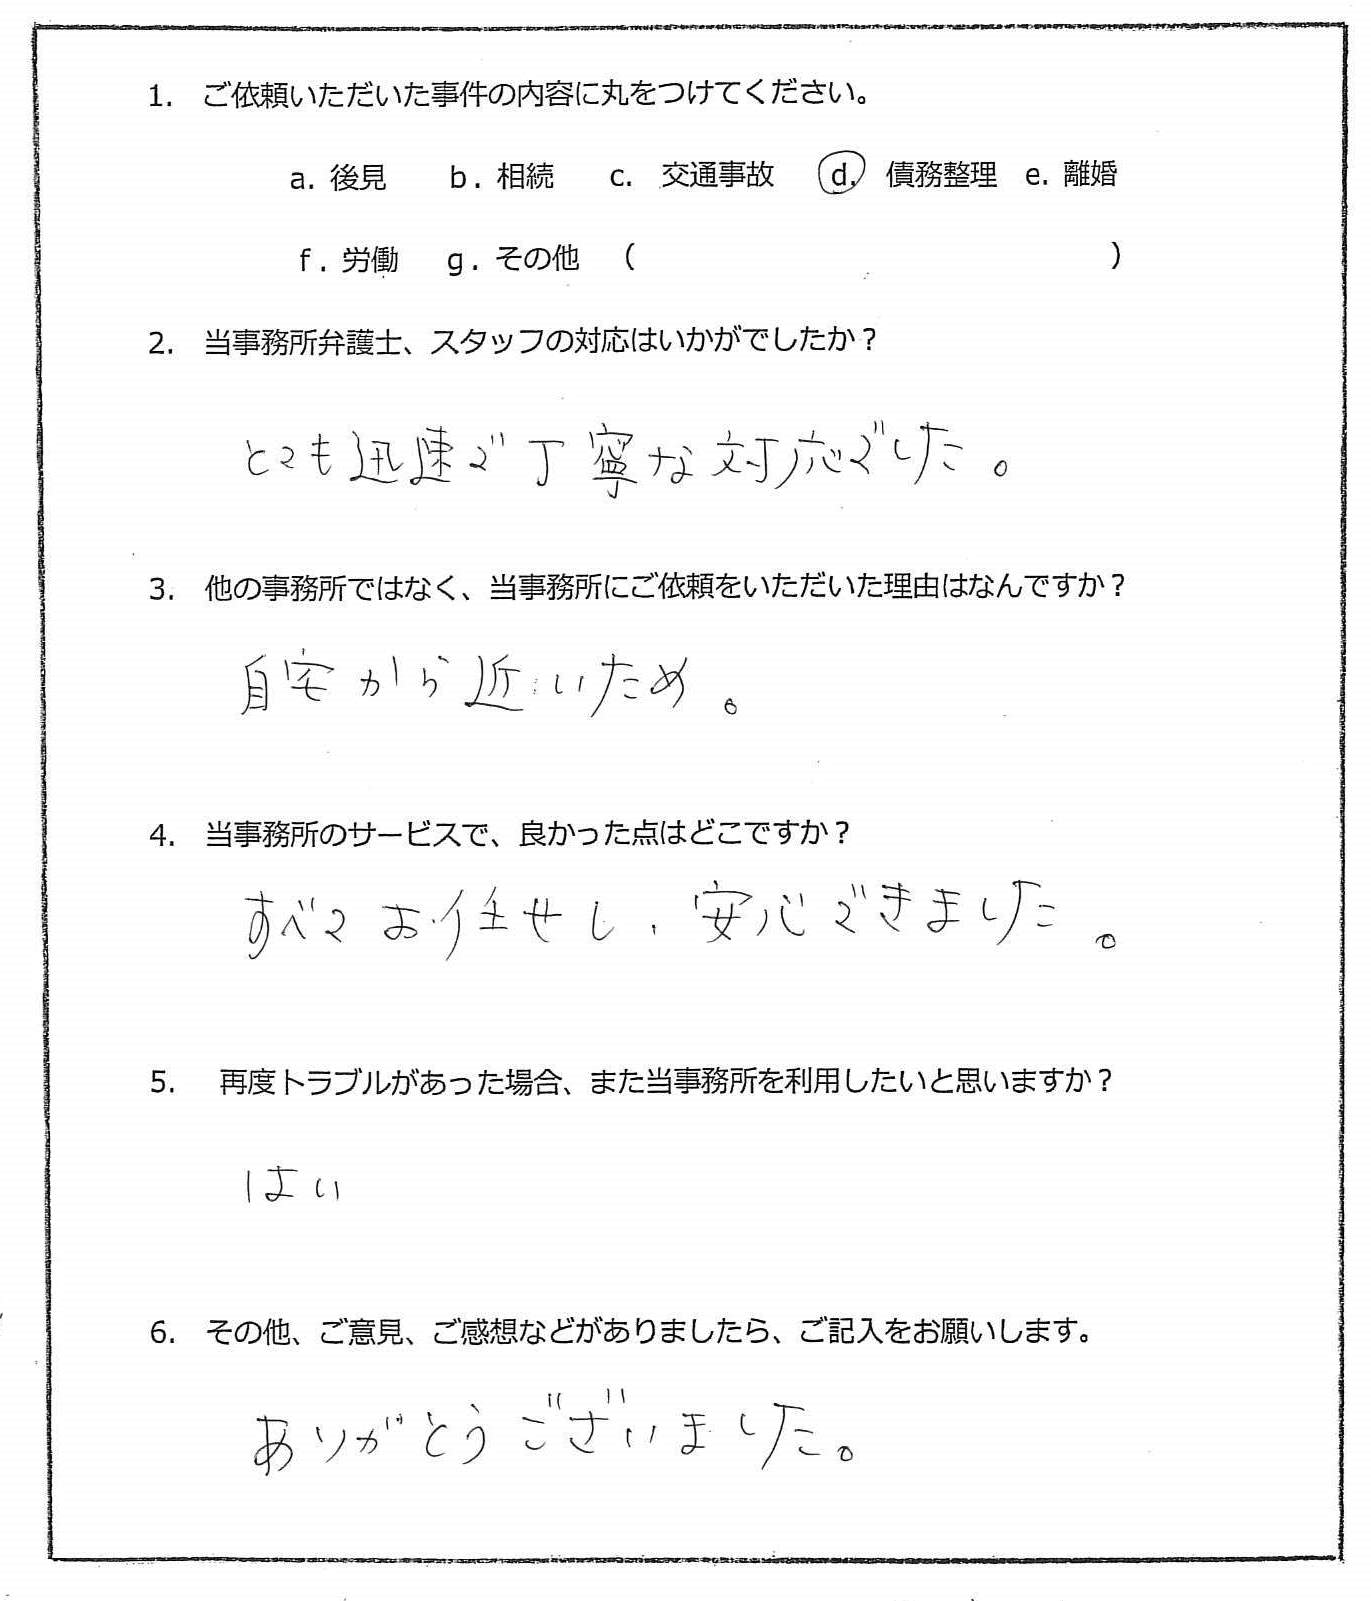 1. ご依頼いただいた事件の内容に丸をつけてください。
a. 後見 b. 相続 c. 交通事故 d. 債務整理 e. 離婚
f. 労働 g. その他 ( )
2. 当事務所弁護士、スタッフの対応はいかがでしたか？
とても迅速で丁寧な対応でした。
3. 他の事務所ではなく、当事務所にご依頼をいただいた理由はなんですか？
自宅から近いため。
4. 当事務所のサービスで、良かった点はどこですか？
すべてお任せし、安心できました。
5. 再度トラブルがあった場合、また当事務所を利用したいと思いますか？
はい
6. その他、ご意見、ご感想などがありましたら、ご記入をお願いします。
ありがとうございました。